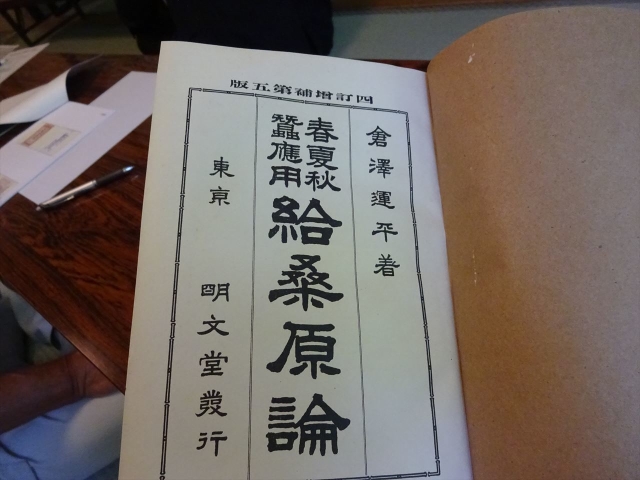 四訂増補第五版
倉澤運平著
春夏秋
蠶應用
給桑原論
東京
明文堂發行